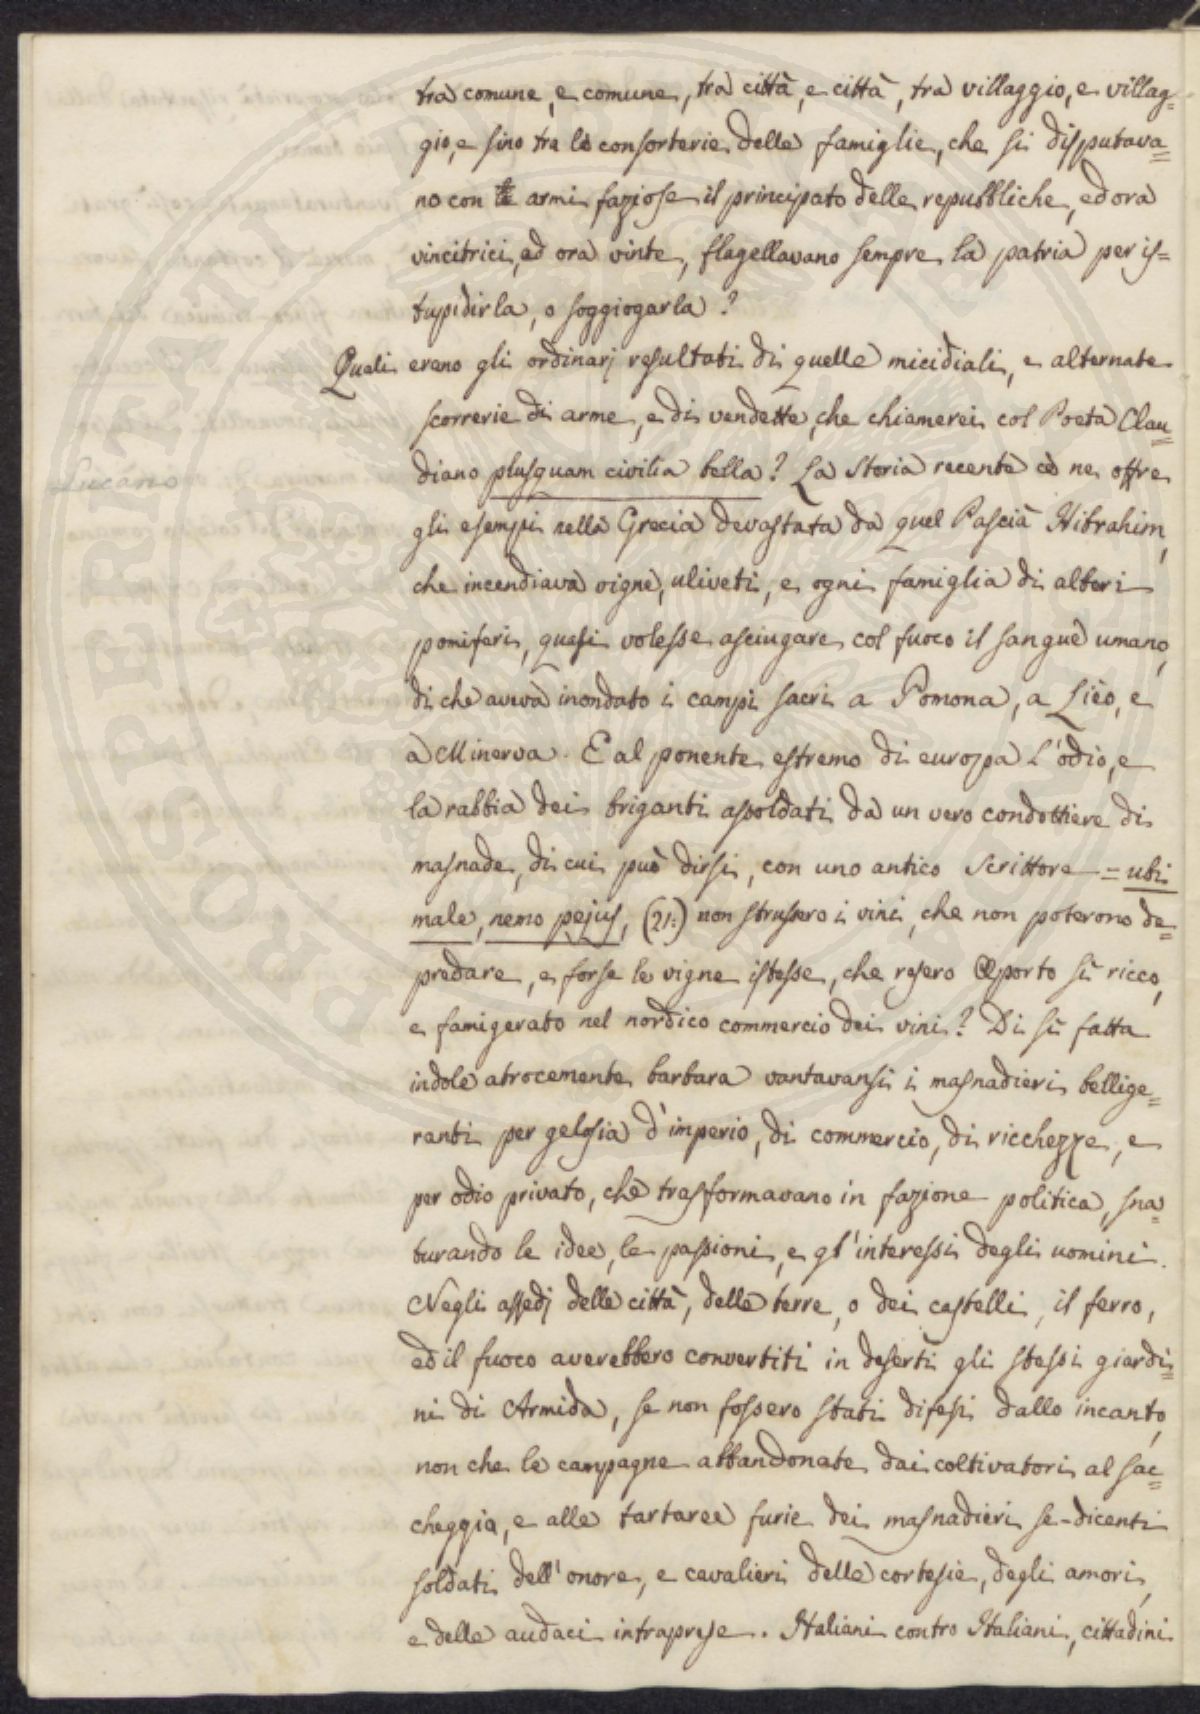 tra comune, e comune, tra città, e città, tra villaggio, e villag=
gio, e sino tra le consorterie delle famiglie, che si disputava=
no con armi faziose il principato delle repubbliche, ed ora
vincitrici, ed ora vinte, flagellavano sempre la patria per is=
tupidirla, o soggiogarla?
Quali erano gli ordinarj resultati di quelle micidiali, e alternate
scorrerie di arme, e di vendette, che chiamerei col Poeta Clau=
diano plusquam civilia bella? La Storia recente ce ne offre
Lucano
gli esempi nella Grecia devastata da quel Pascià Hibrahim,
che incendiava vigne, uliveti, e ogni famiglia di alberi
pomiferi, quasi volesse asciugare col fuoco il sangue umano,
di che aveva inondato i campi sacri a Pomona, a Liéo, e
a Minerva. E al ponente estremo di europa l'odio, e
la rabbia dei briganti assoldati da un vero condottiere di
masnade, di cui può dirsi, con uno antico Scrittore = ubi
male, nemo pejus, (21.) non strussero i vini, che non poterono de=
predare, e forse le vigne istesse, che resero Oporto sì ricco,
e famigerato nel nordico commercio dei vini? Di sì fatta
indole atrocemente barbara vantavansi i masnadieri bellige=
ranti per gelosia d'imperio, di commercio, di ricchezze, e
per odio privato, che trasformavano in fazione politica, sna=
turando le idee, le passioni, e gl'interessi degli uomini.
Negli assedj delle città, delle terre, o dei castelli, il ferro,
ed il fuoco averebbero convertiti in deserti gli stessi giardi=
ni di Armida, se non fossero stati difesi dallo incanto,
non che le campagne abbandonate dai coltivatori al sac=
cheggio, e alle tartaree furie dei masnadieri se-dicenti
soldati dell'onore, e cavalieri delle cortesie, degli amori,
e delle audaci intraprese. Italiani contro Italiani, cittadini
PROSPERITATI PUBLICAE